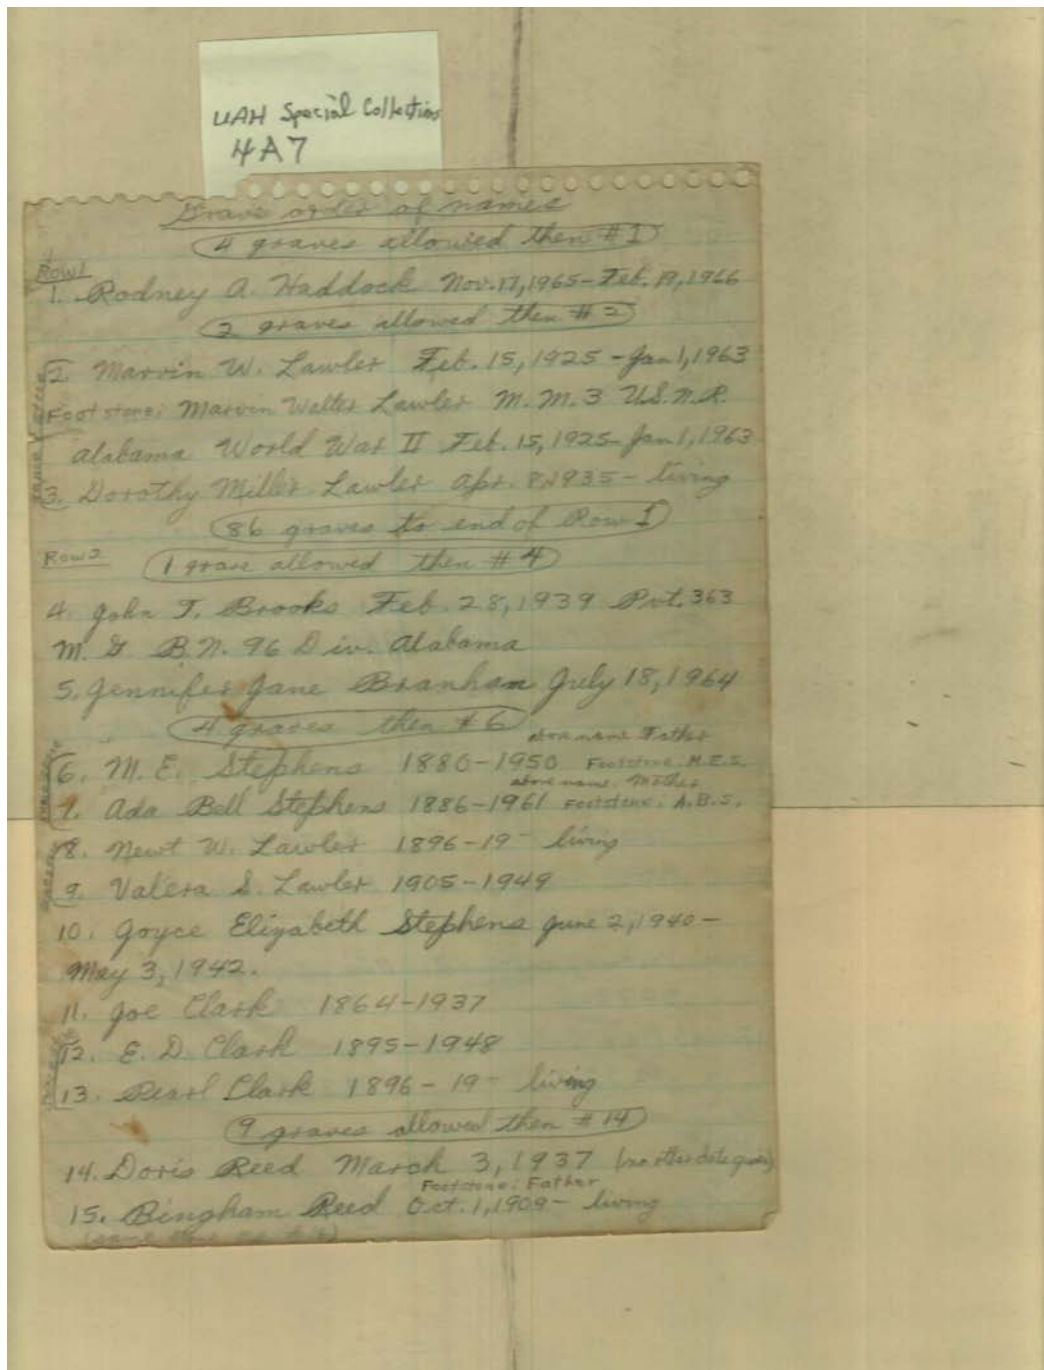 UAH Special Collections
4A7
Grave order of names
4 graves allowed then #1
Row 1
1. Rodney A. Haddock Nov. 17, 1965 - Feb. 19, 1966
2 graves allowed then #2
2. Marvin W. Lawler Feb. 15, 1925 - Jan 1, 1963
Footstone: Marvin Walter Lawler M.M.3 U.S.N.R.
Alabama World War II Feb. 15, 1925 - Jan 1, 1963
3. Dorothy Miller Lawler Apr. 8, 1935 - living
86 graves to end of Row 1
Row 2
1 grave allowed then #4
4. John T. Brooks Feb. 28, 1939 Pvt. 363
M. G B.N. 96 Div. Alabama
5. Jennifer Jane Branham July 18, 1964
4 graves then #6
above name Father
6. M. E. Stephens 1880-1950 Footstone: M.E.S.
above name: Mother
7. Ada Bell Stephens 1886-1961 Footstone: A.B.S.
8. Newt W. Lawler 1896-19- living
9. Valera S. Lawler 1905-1949
10. Joyce Elizabeth Stephens June 2, 1940 -
May 3, 1942.
11. Joe Clark 1864-1937
12. E. D. Clark 1895-1948
13. Pearl Clark 1896-19- living
9 graves allowed then #14
14. Doris Reed March 3, 1937 (no other date given)
Footstone: Father
15. Bingham Reed Oct. 1, 1909 - living
(same stone as #14)